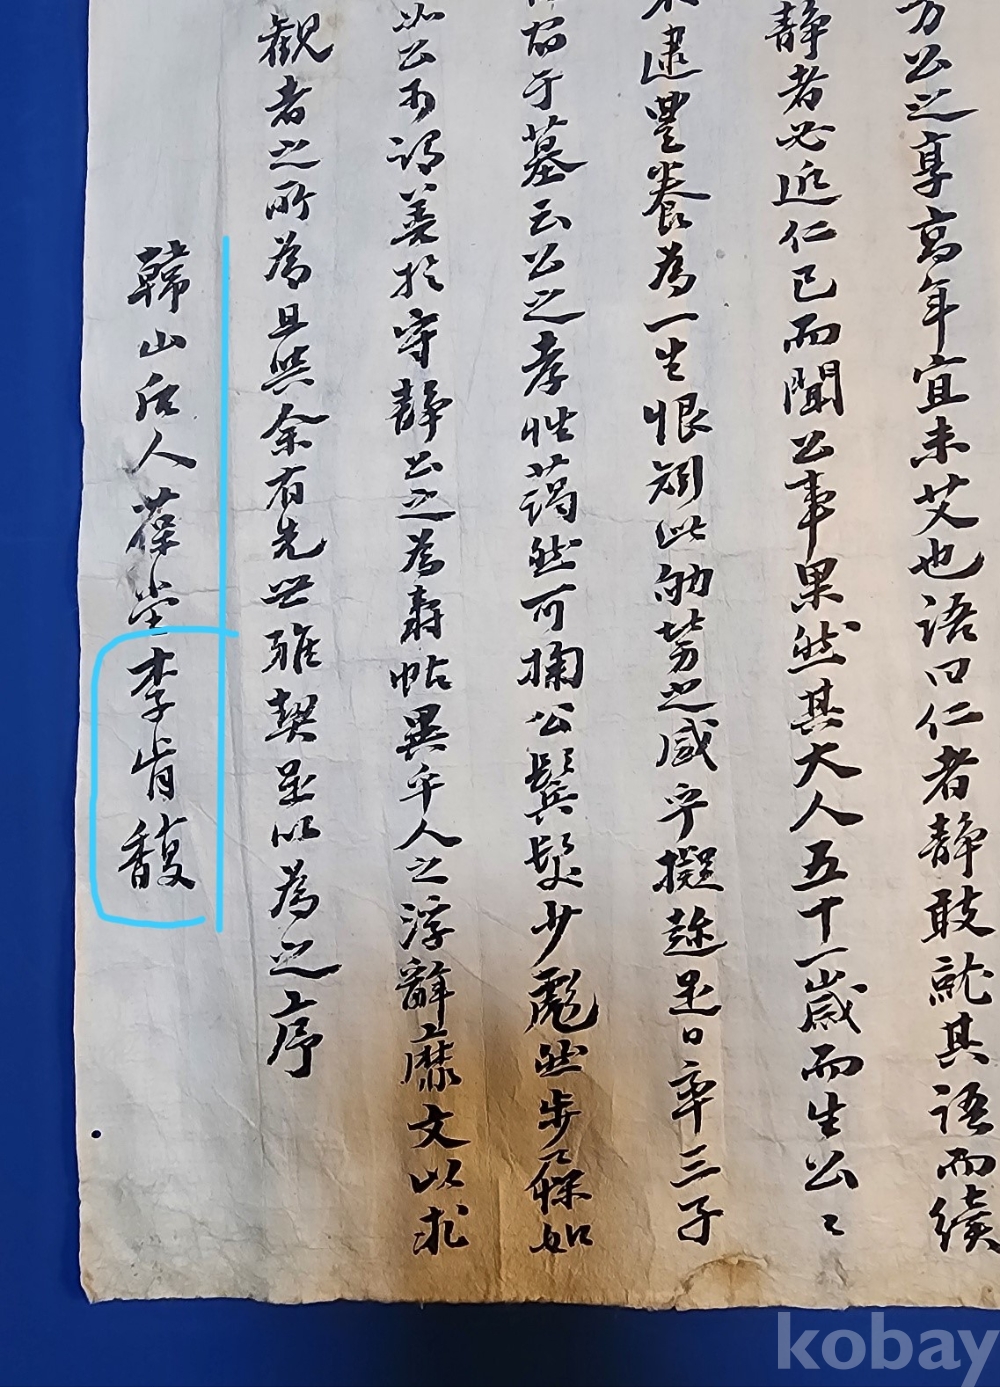 方公之享高年宜未艾也語曰仁者静敢就其語而續
静者必近仁已而聞公事果然其大人五十一歲而生公〻
逮豊養為一生恨矧此劬勞之感乎擬趁是日率三子
前于墓云公之孝性藹然可掬公鬢髮少彪然步屧如
公可謂善於守静公之為壽帖異乎人之浮辭靡文以求
觀者之所為且與余有先世雅契是以為之序
韓山后人葆堂李肯馥
kobay